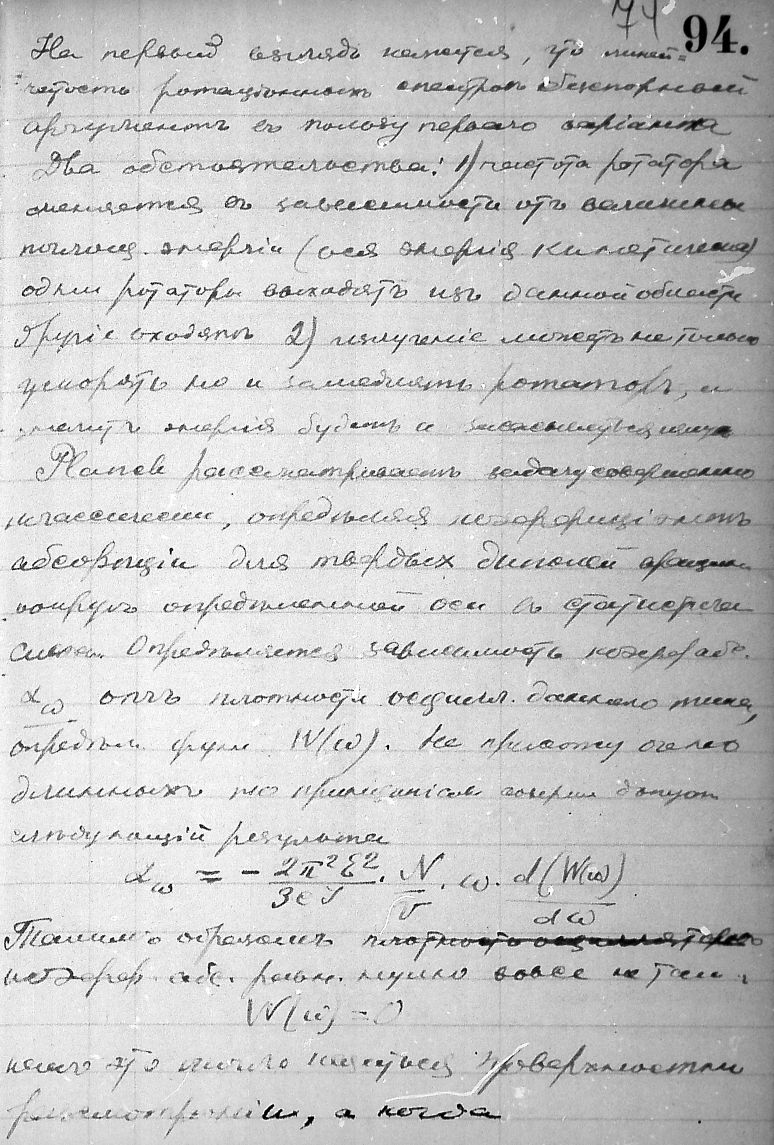 74 94.
На первый взглядъ кажется, что линей=
чатость ротаціонныхъ спектровъ безспорный
аргументъ въ пользу перваго варіанта
Два обстоятельства: 1) частота ротатора
меняется въ зависимости отъ величины
поглощ. энергіи (вся энергія кинетическая)
одни ротаторы выходятъ изъ данной области
другіе входятъ 2) излученіе можетъ не только
ускорять но и замедлять ротаторъ, и
значитъ энергія будетъ и
Planck разсматриваетъ задачу совершенно
классически, опредѣляя коэффиціентъ
абсорпціи для твердыхъ диполей вращ.
вокругъ опредѣленной оси въ статистич.
смысл. Опредѣляется зависимость коэфф. абс.
α_ω отъ плотности осцилл. даннаго типа,
опредѣл. функ W(ω). Не привожу очень
длинныхъ но принципіал.
слѣдующій результатъ
α_ω = - 2π²ℰ²/3cJ · N/V · ω · d(W(ω))/dω
Такимъ образомъ плотность осцилляторовъ
коэфф. абс. равн. нулю вовсе не тамъ,
W(ω) = 0
какъ это могло казаться при поверхностномъ
разсмотрѣніи, а когда